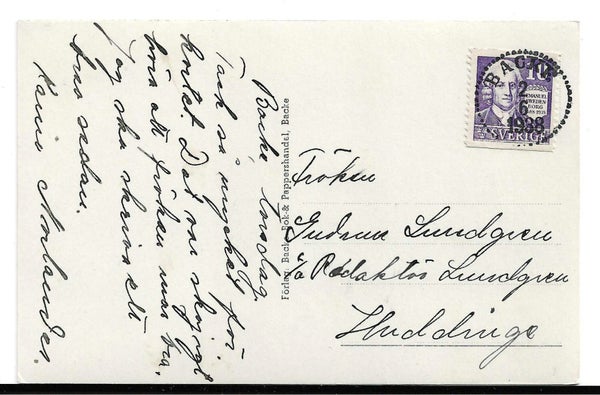 Backe, torsdag.
Tack så mycket för
kortet. Det var skojigt
höra att fröken mår bra.
Jag ska skriva ett
brev sedan.
Karin Norlander.
Förlag: Backe Bok- & Pappershandel, Backe
BACKE
2
6
1938
10
EMANUEL
SWEDEN
BORG
SVERIGE
Fröken
Gudrun Lundgren
c/o Redaktör Lundgren
Huddinge